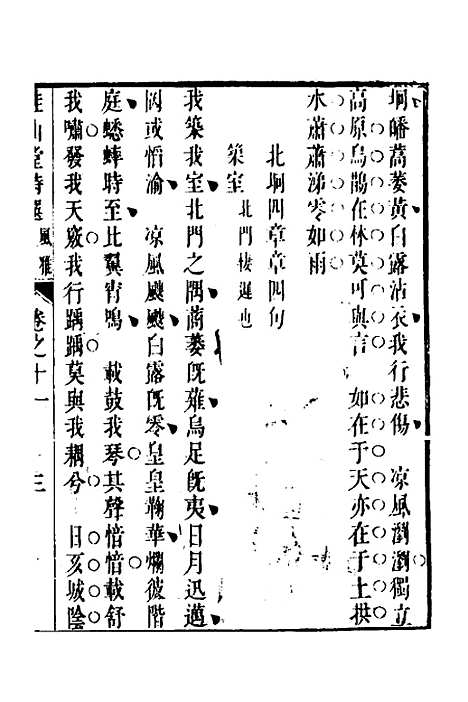 坰皤蒿萎黃白露沾衣我行悲傷　涼風瀏瀏獨立
高原烏鵲在林莫可與言　如在于天亦在于土拱
木蕭蕭涕零如雨
北坰四章章四句
築室北門棲遲也
我築我室北門之隅蒿蔞既薙烏足既夷日月迅邁
罔或惰渝　涼風颼颼白露既零皇皇鞠華爛彼階
庭蟋蟀時至比翼宵鳴　載鼓我琴其聲愔愔載舒
我嘯發我天竅我行踽踽莫與我耦兮　日亥城陰
堂詩選風雅　卷之十一　三